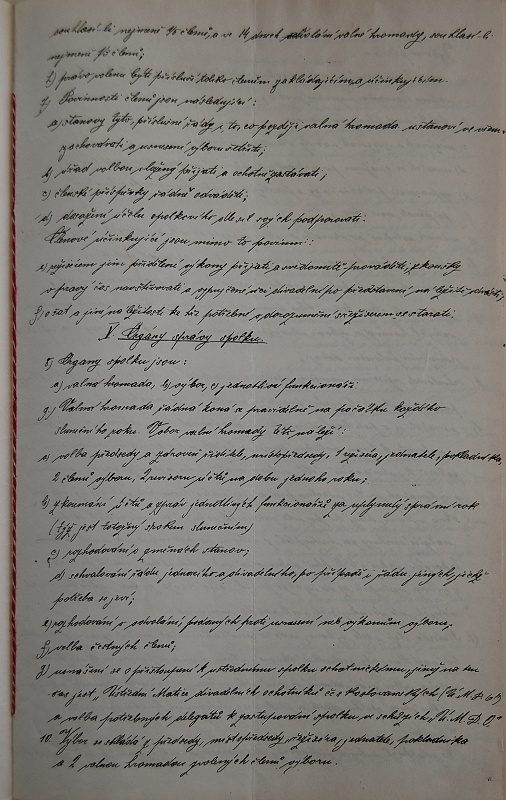 souhlasí-li nejméně 1/5 členů, a ve 14 dnech svolání valné hromady, souhlasí-li
nejméně 1/5 členů;
f) právo volem býti přísluší toliko členům zakládajícím a účinkujícím.
7) Povinnosti členů jsou následující:
a) stanovy tyto, příslušné řády i to, co později valná hromada ustanoví ve všem
zachovávati a usnesení výboru šetřiti;
b) úřad volbou vložený přijati a ochotně zastávati;
c) členské příspěvky řádně odváděti;
d) dosažení účelu spolkového dle sil svých podporovati.
Členové účinkující jsou mimo to povinni:
e) režisérem jim přidělené výkony přijati a svědomitě prováděti; zkoušky
v pravý čas navštěvovati a vypůjčené věci divadelní po představení na ležitě
f) o šat a jiné náležitosti ke hře potřebné v dorozumění s režisérem se starati.
V Orgány správy spolku.
8) Orgány spolku jsou:
a) valná hromada, b) výbor, c) jednotliví funkcionáři
9) Valná hromada řádná koná se pravidelně na počátku každého
slunečního roku. Výbor valné hromady této náleží:
a) volba předsedy a zároveň ředitele, místopředsedy, 1 režiséra, jednatele, pokladníka,
2 členů výboru, 2 revisorů účtů na dobu jednoho roku;
b) zkoumání účtů a zpráv jednotlivých funkcionářů za uplynulý správní rok
(týž jest totožný s rokem slunečním)
c) rozhodování o změnách stanov;
d) schvalování řádu jednacího a divadelního, po případě i řádů jiných, jichž
potřeba se jeví;
e) rozhodování o odvolání podaných proti usnesení neb výkonům výboru;
f) volba čestných členů;
g) usnášení se o přistoupení k ústřednímu spolku ochotnickému, jímž na ten
čas jest "Ústřední Matice divadelních ochotníků českoslovanských (Ú. M. D. O.)
a volba potřebných delegátů k zastupování spolku ve schůzích "Ú. M. D. O."
10. Výbor se skládá z předsedy, místopředsedy, režiséra, jednatele, pokladníka
a 2 valnou hromadou zvolených členů výboru.